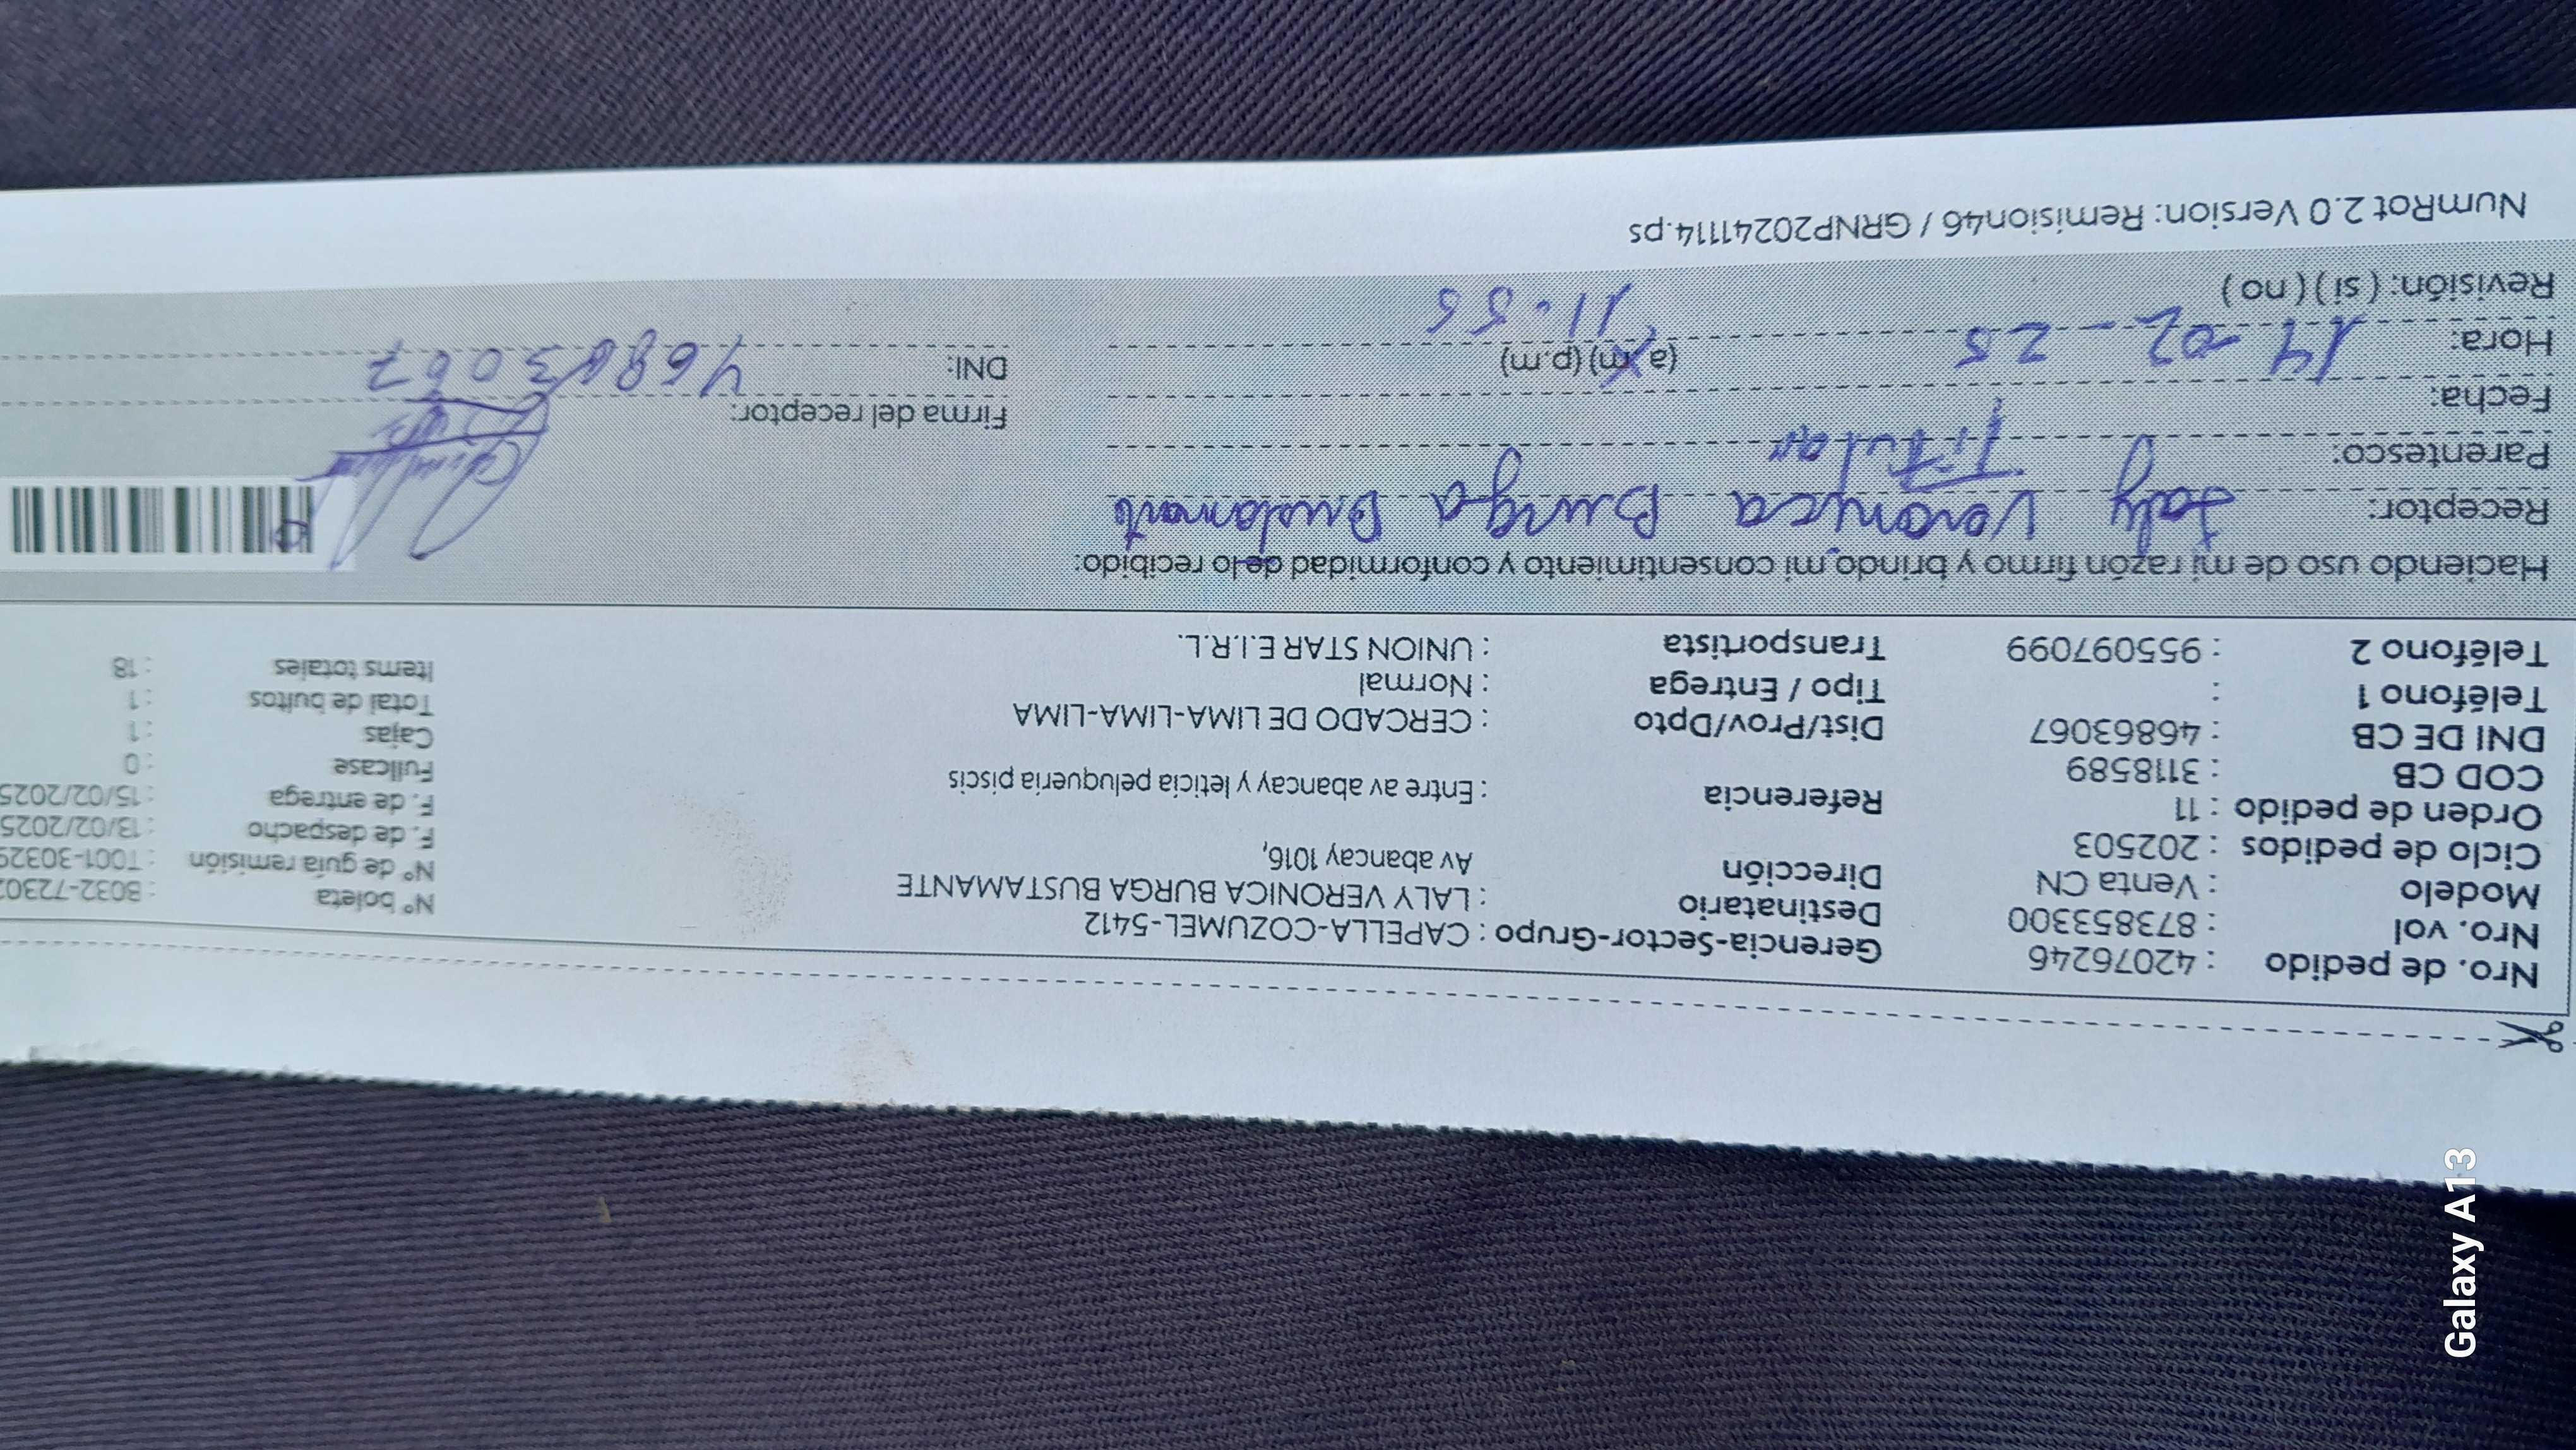 Nro. de pedido : 42076246 Gerencia-Sector-Grupo : CAPELLA-COZUMEL-5412
Nro. vol : 873853300 Destinatario : LALY VERONICA BURGA BUSTAMANTE Nº boleta : B032-72302
Modelo : Venta CN Dirección Av abancay 1016, Nº de guía remisión : T001-30329
Ciclo de pedidos : 202503 F. de despacho : 13/02/2025
Orden de pedido : 11 Referencia : Entre av abancay y leticia peluqueria piscis F. de entrega : 15/02/2025
COD CB : 3118589 Fullcase : 0
DNI DE CB : 46863067 Dist/Prov/Dpto : CERCADO DE LIMA-LIMA-LIMA Cajas : 1
Teléfono 1 : Tipo / Entrega : Normal Total de bultos : 1
Teléfono 2 : 955097099 Transportista : UNION STAR E.I.R.L. Items totales : 18
Haciendo uso de mi razón firmo y brindo mi consentimiento y conformidad de lo recibido:
Receptor: Laly Veronica Burga Bustamante
Parentesco: Titular
Fecha: Firma del receptor:
Hora: 14-02-25 (a.m) (p.m) 11.55 DNI: 46863067
Revisión: ( si ) ( no )
NumRot 2.0 Version: Remision46 / GRNP20241114.ps
Galaxy A13